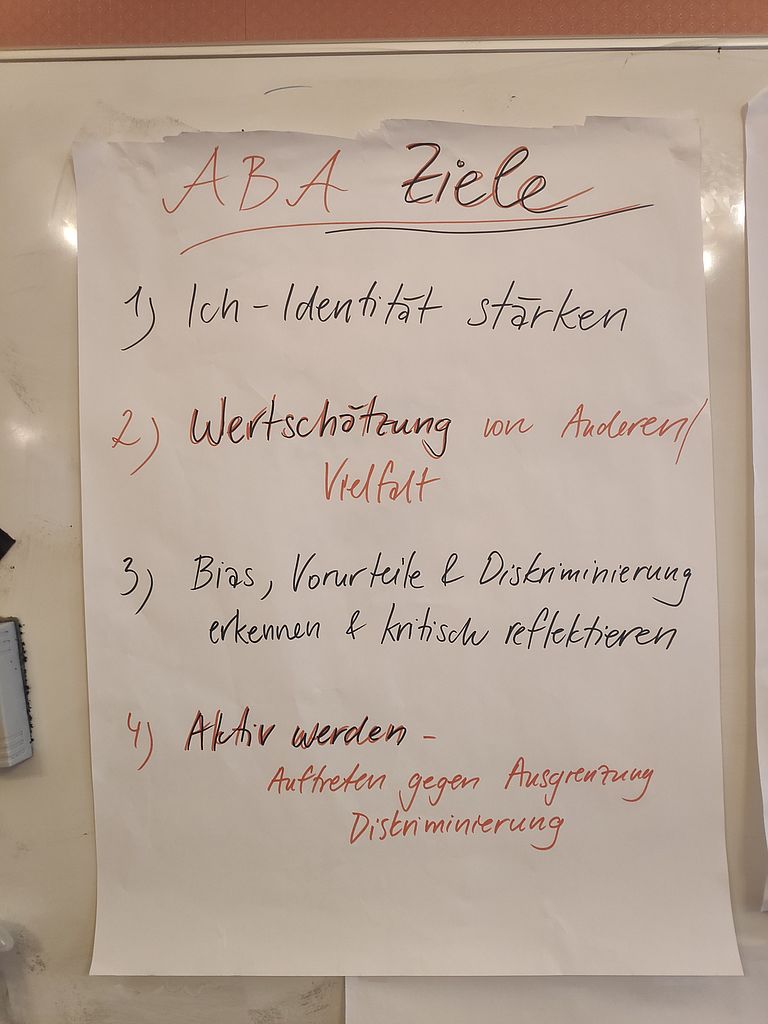 ABA Ziele
1) Ich-Identität stärken
2) Wertschätzung von Anderen/
Vielfalt
3) Bias, Vorurteile & Diskriminierung
erkennen & kritisch reflektieren
4) Aktiv werden -
Auftreten gegen Ausgrenzung
Diskriminierung